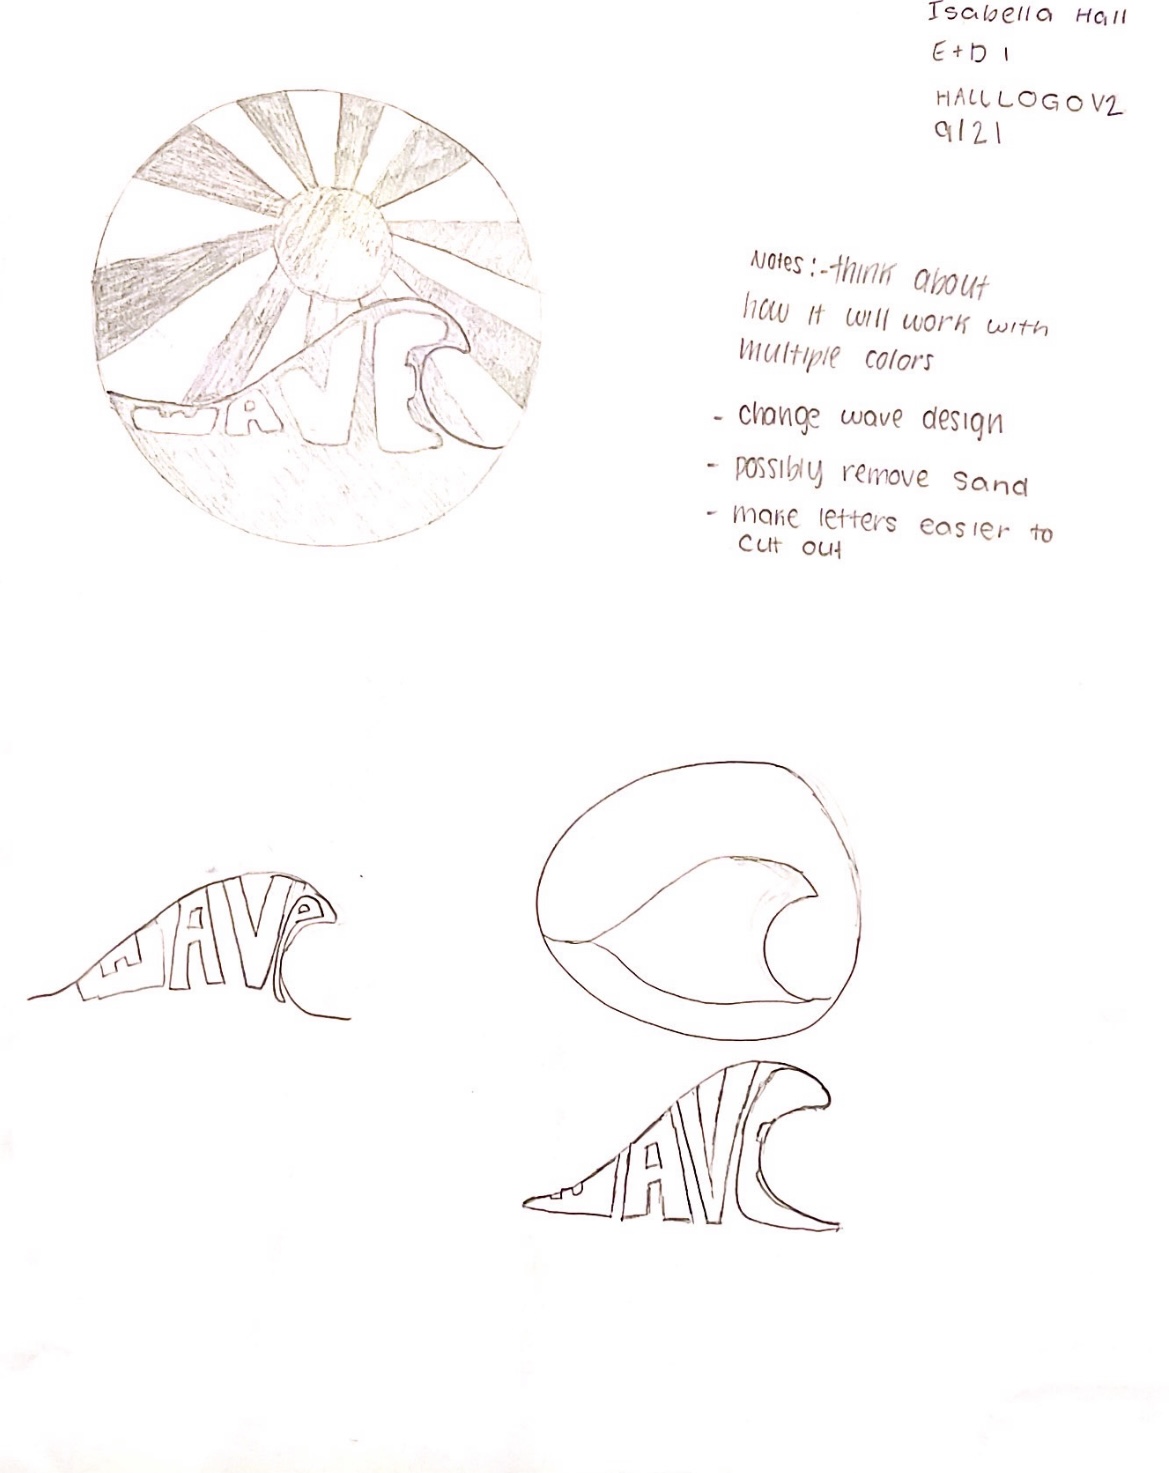 Isabella Hall
E+D 1
HALLLOGOV2
9/21
WAVE
Notes: - think about
how it will work with
multiple colors
- change wave design
- possibly remove sand
- make letters easier to
cut out
WAVe
WAVE